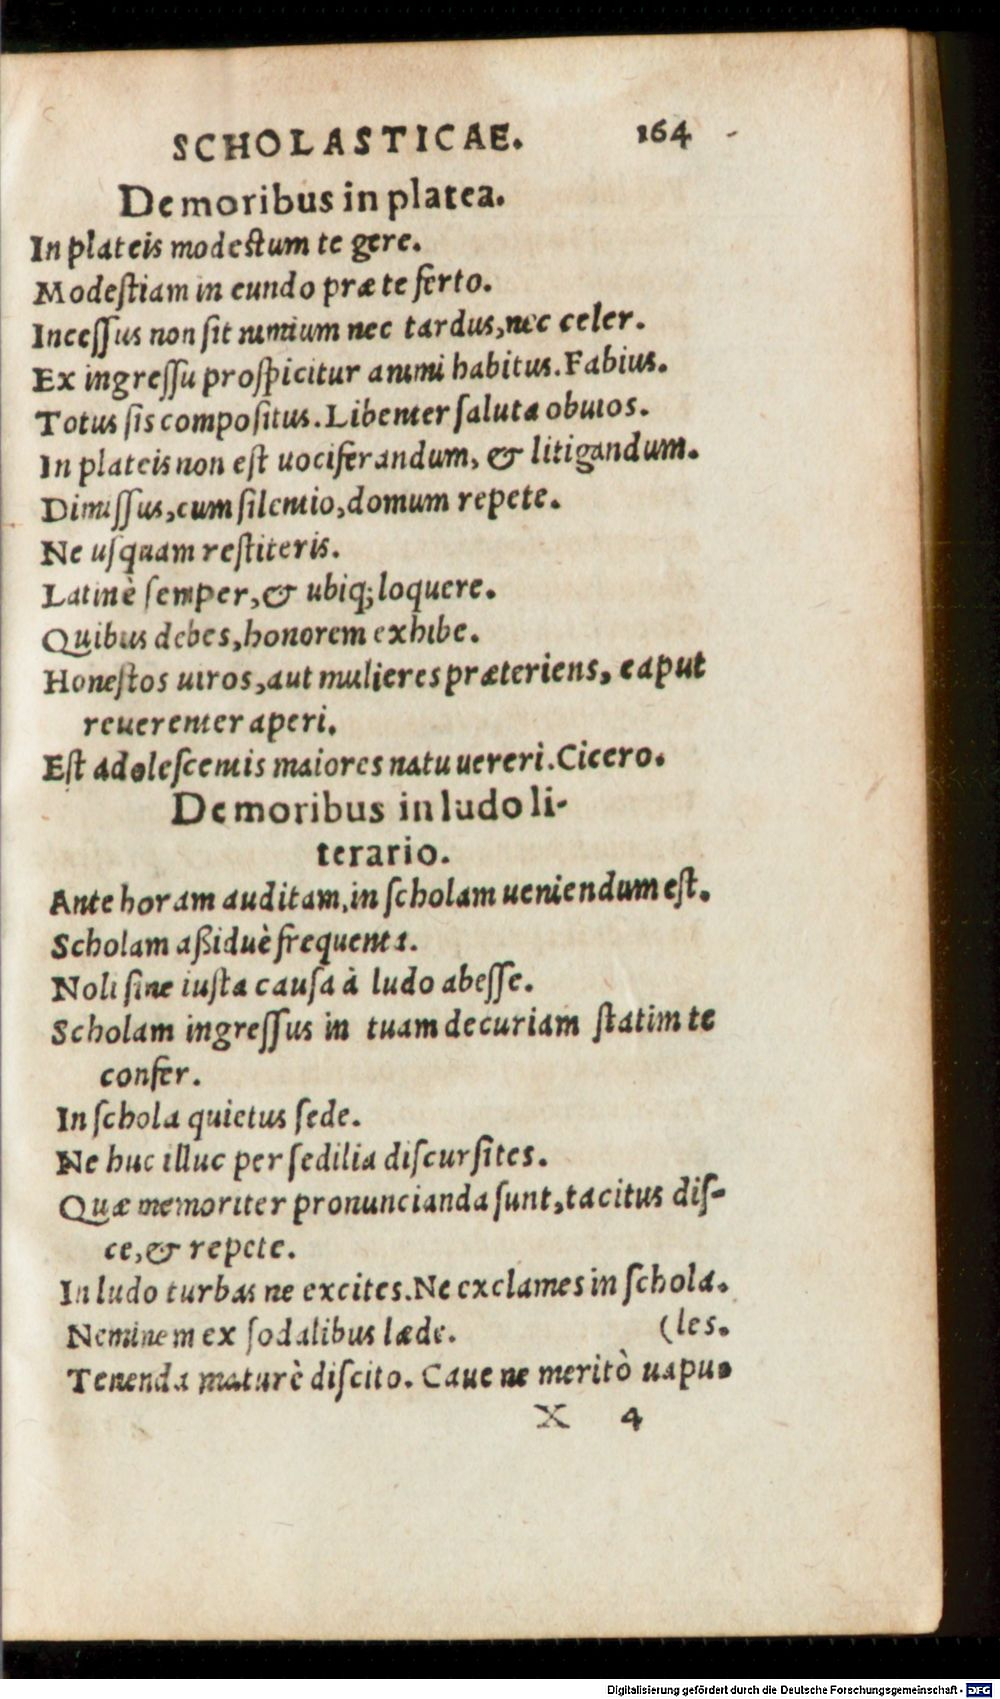 SCHOLASTICAE. 164
De moribus in platea.
In plateis modestum te gere.
Modestiam in eundo præ te ferto.
Incessus non sit nimium nec tardus, nec celer.
Ex ingressu prospicitur animi habitus. Fabius.
Totus sis compositus. Libenter saluta obuios.
In plateis non est uociferandum, & litigandum.
Dimissus, cum silentio, domum repete.
Ne usquam restiteris.
Latinè semper, & ubiq; loquere.
Quibus debes, honorem exhibe.
Honestos uiros, aut mulieres præteriens, caput
reuerenter aperi.
Est adolescentis maiores natu uereri. Cicero.
De moribus in ludo li-
terario.
Ante horam auditam, in scholam ueniendum est.
Scholam aßiduè frequenta.
Noli sine iusta causa à ludo abesse.
Scholam ingressus in tuam decuriam statim te
confer.
In schola quietus sede.
Ne huc illuc per sedilia discursites.
Quæ memoriter pronuncianda sunt, tacitus dis-
ce, & repete.
In ludo turbas ne excites. Ne exclames in schola.
Neminem ex sodalibus læde. (les.
Tenenda maturè discito. Caue ne meritò uapu-
X 4
Digitalisierung gefördert durch die Deutsche Forschungsgemeinschaft - DFG